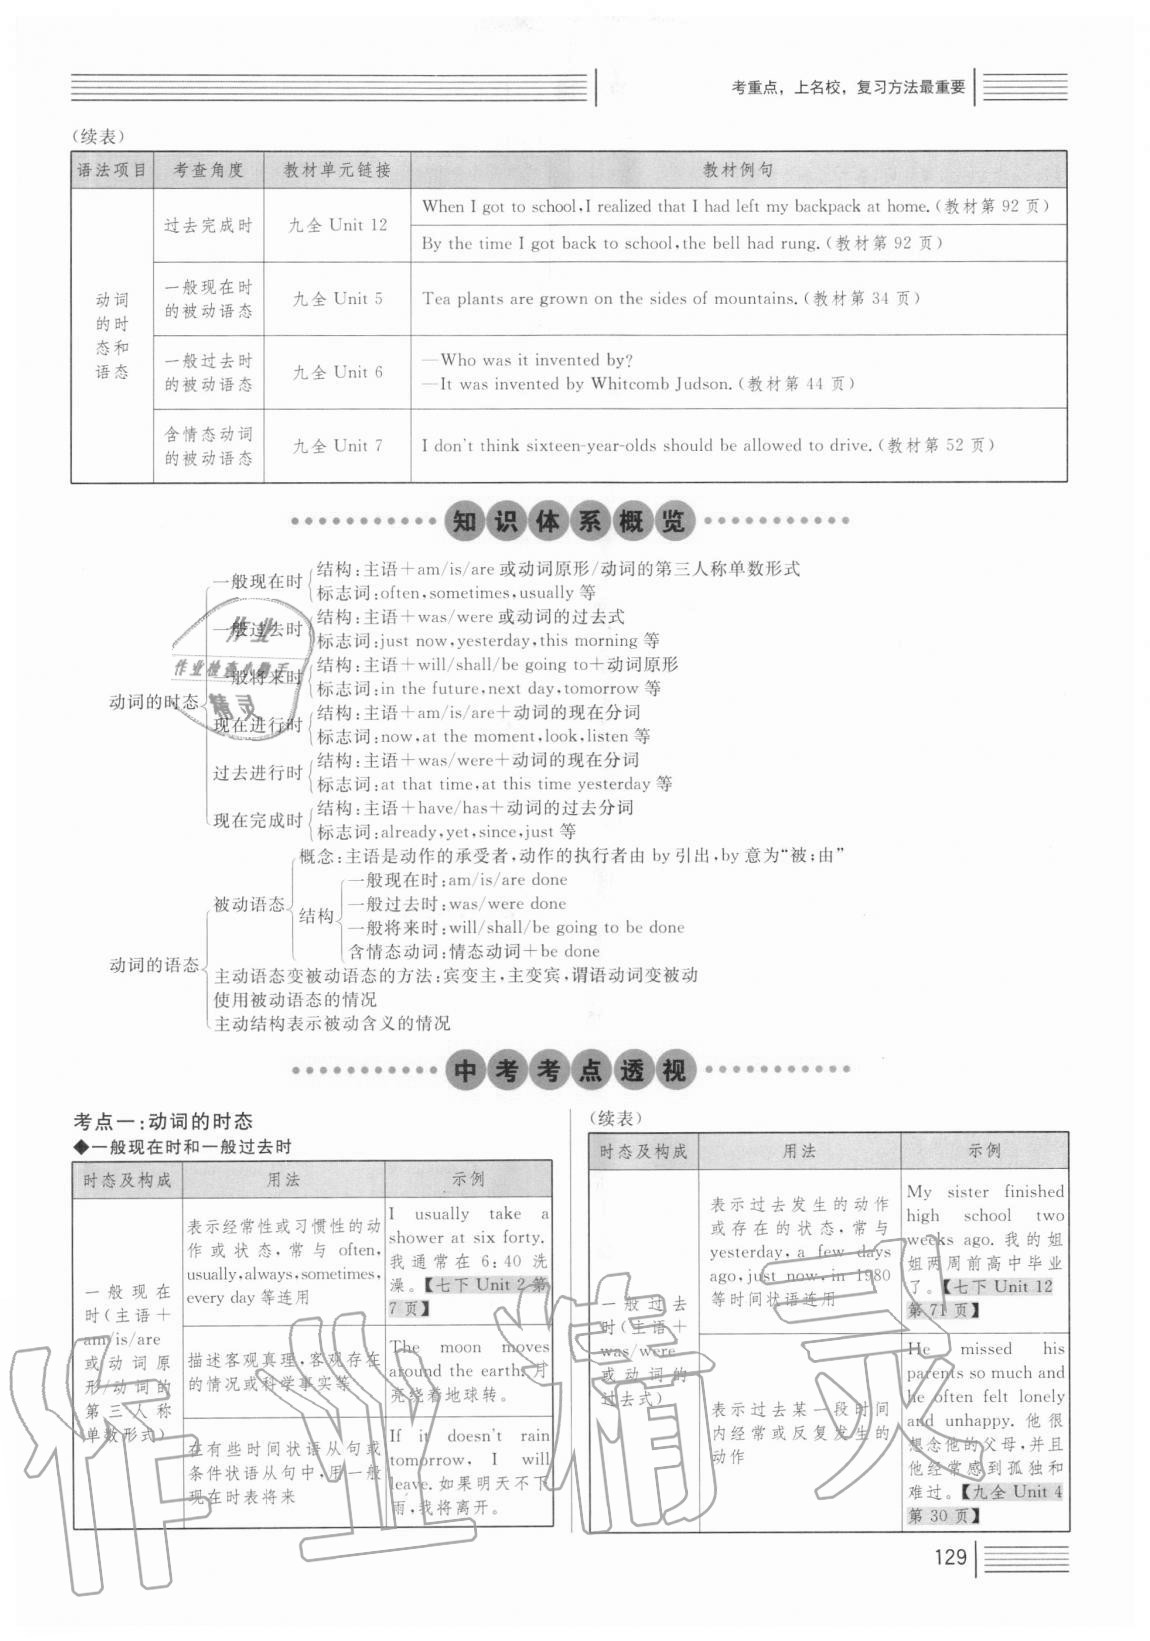 考重点，上名校，复习方法最重要
(续表)
语法项目 考查角度 教材单元链接 教材例句
动词的时态和语态
过去完成时 九全 Unit 12
When I got to school,I realized that I had left my backpack at home.(教材第 92 页)
By the time I got back to school,the bell had rung.(教材第 92 页)
一般现在时的被动语态 九全 Unit 5 Tea plants are grown on the sides of mountains.(教材第 34 页)
一般过去时的被动语态 九全 Unit 6
—Who was it invented by?
—It was invented by Whitcomb Judson.(教材第 44 页)
含情态动词的被动语态 九全 Unit 7 I don't think sixteen-year-olds should be allowed to drive.(教材第 52 页)
知识体系概览
动词的时态
一般现在时
结构:主语+am/is/are 或动词原形/动词的第三人称单数形式
标志词:often,sometimes,usually 等
一般过去时
结构:主语+was/were 或动词的过去式
标志词:just now,yesterday,this morning 等
一般将来时
结构:主语+will/shall/be going to+动词原形
标志词:in the future,next day,tomorrow 等
现在进行时
结构:主语+am/is/are+动词的现在分词
标志词:now,at the moment,look,listen 等
过去进行时
结构:主语+was/were+动词的现在分词
标志词:at that time,at this time yesterday 等
现在完成时
结构:主语+have/has+动词的过去分词
标志词:already,yet,since,just 等
动词的语态
被动语态
概念:主语是动作的承受者,动作的执行者由 by 引出,by 意为“被;由”
结构
一般现在时:am/is/are done
一般过去时:was/were done
一般将来时:will/shall/be going to be done
含情态动词:情态动词+be done
主动语态变被动语态的方法:宾变主,主变宾,谓语动词变被动
使用被动语态的情况
主动结构表示被动含义的情况
作业
作业检查小助手
精灵
中考考点透视
考点一:动词的时态
◆一般现在时和一般过去时
时态及构成 用法 示例
一般现在
时(主语+
am/is/are
或动词原
形/动词的
第三人称
单数形式)
表示经常性或习惯性的动
作或状态,常与 often,
usually,always,sometimes,
every day 等连用
I usually take a
shower at six forty.
我通常在 6:40 洗
澡。【七下 Unit 2 第
7 页】
描述客观真理,客观存在
的情况或科学事实等
The moon moves
around the earth. 月
亮绕着地球转。
在有些时间状语从句或
条件状语从句中,用一般
现在时表将来
If it doesn't rain
tomorrow, I will
leave. 如果明天不下
雨,我将离开。
(续表)
时态及构成 用法 示例
一般过去
时(主语+
was/were
或动词的
过去式)
表示过去发生的动作
或存在的状态,常与
yesterday, a few days
ago,just now,in 1980
等时间状语连用
My sister finished
high school two
weeks ago. 我的姐
姐两周前高中毕业
了。【七下 Unit 12
第 71 页】
表示过去某一段时间
内经常或反复发生的
动作
He missed his
parents so much and
he often felt lonely
and unhappy. 他很
想念他的父母,并且
他经常感到孤独和
难过。【九全 Unit 4
第 30 页】
作业精灵
129